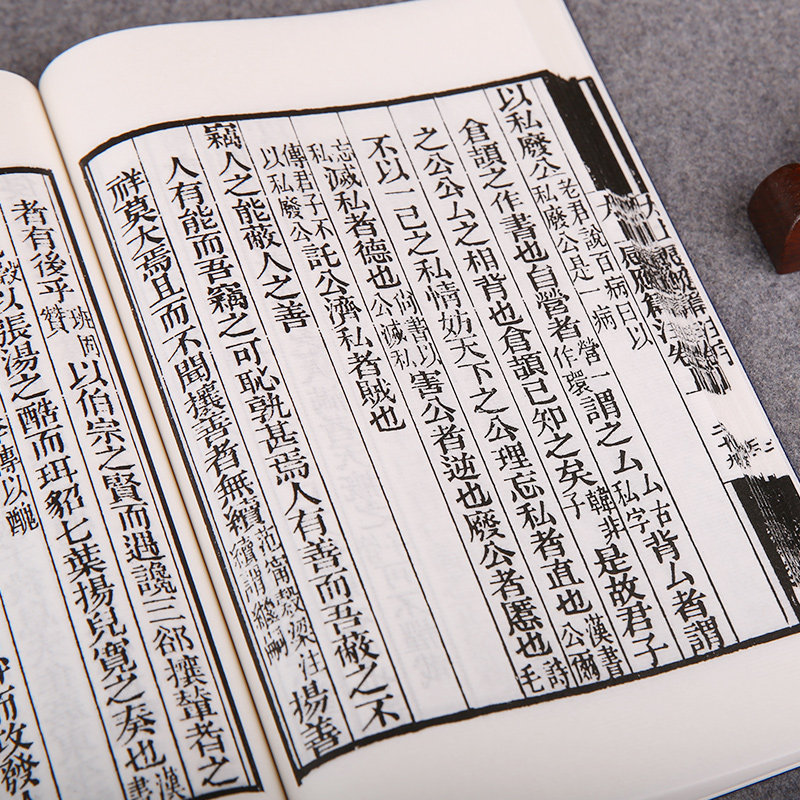 以私廢公老君說百病曰以私廢公是一病
倉頡之作書也自營者營一作環謂之厶厶古私字背厶者謂
之公公厶之相背也倉頡已知之矣韓非子是故君子
不以一己之私情妨天下之公理忘私者直也漢書公儞
忘私滅私者德也尚書以公滅私害公者逆也廢公者慝也毛詩
傳君子不以私廢公託公濟私者賊也
竊人之能蔽人之善
人有能而吾竊之可恥孰甚焉人有善而吾蔽之不
祥莫大焉且而不聞攘善者無續范甯穀梁注續謂繼嗣揚善
者有後乎班固贊以伯宗之賢而遇讒三郤攘輦者之
以張湯之酷而珥貂七葉揚兒寬之奏也漢書
傳以醜
而改發人